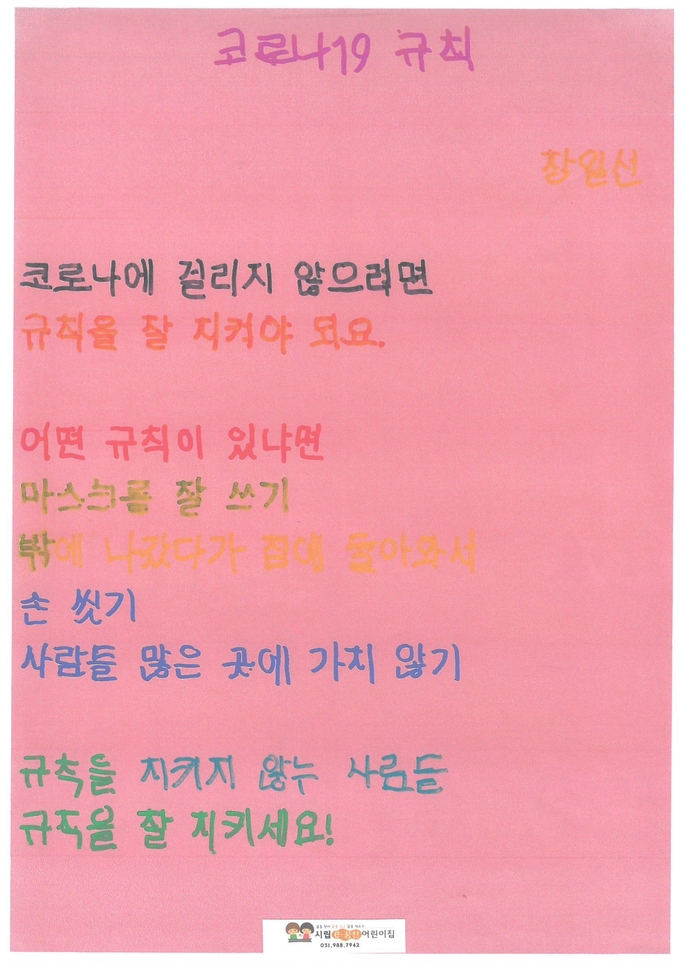 코로나19 규칙
장원선
코로나에 걸리지 않으려면
규칙을 잘 지켜야 되요.
어떤 규칙이 있냐면
마스크를 잘 쓰기
밖에 나갔다가 집에 돌아와서
손 씻기
사람들 많은 곳에 가지 않기
규칙을 지키지 않는 사람들
규칙을 잘 지키세요!
시립 어린이집
031.988.7942